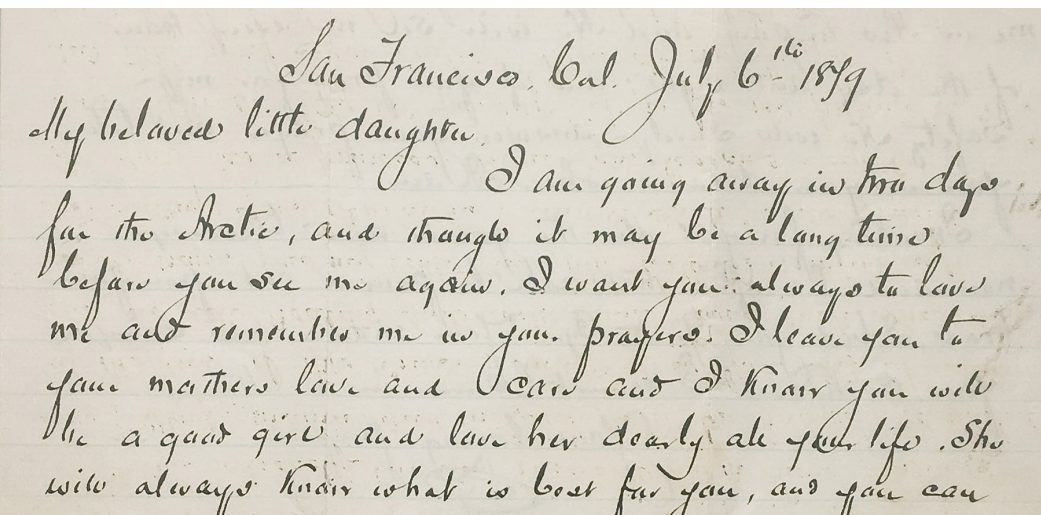 San Francisco, Cal. July 6th 1879
My beloved little daughter
I am going away in two days
for the Arctic, and though it may be a long time
before you see me again. I want you always to love
me and remember me in your prayers. I leave you to
your mothers love and care and I know you will
be a good girl and love her dearly all your life. She
will always know what is best for you, and you can